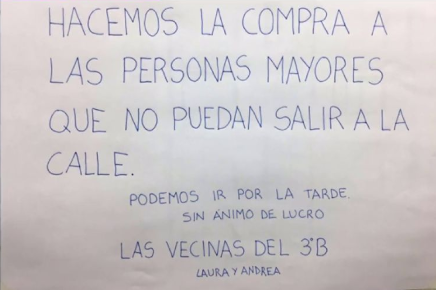 HACEMOS LA COMPRA A
LAS PERSONAS MAYORES
QUE NO PUEDAN SALIR A LA
CALLE.
PODEMOS IR POR LA TARDE.
SIN ÁNIMO DE LUCRO
LAS VECINAS DEL 3°B
LAURA Y ANDREA